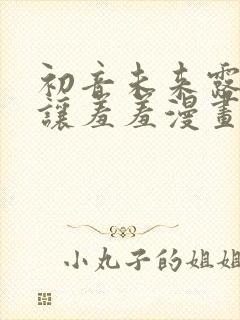 初音未来露
讓羞羞漫畫
小丸子的姐姐